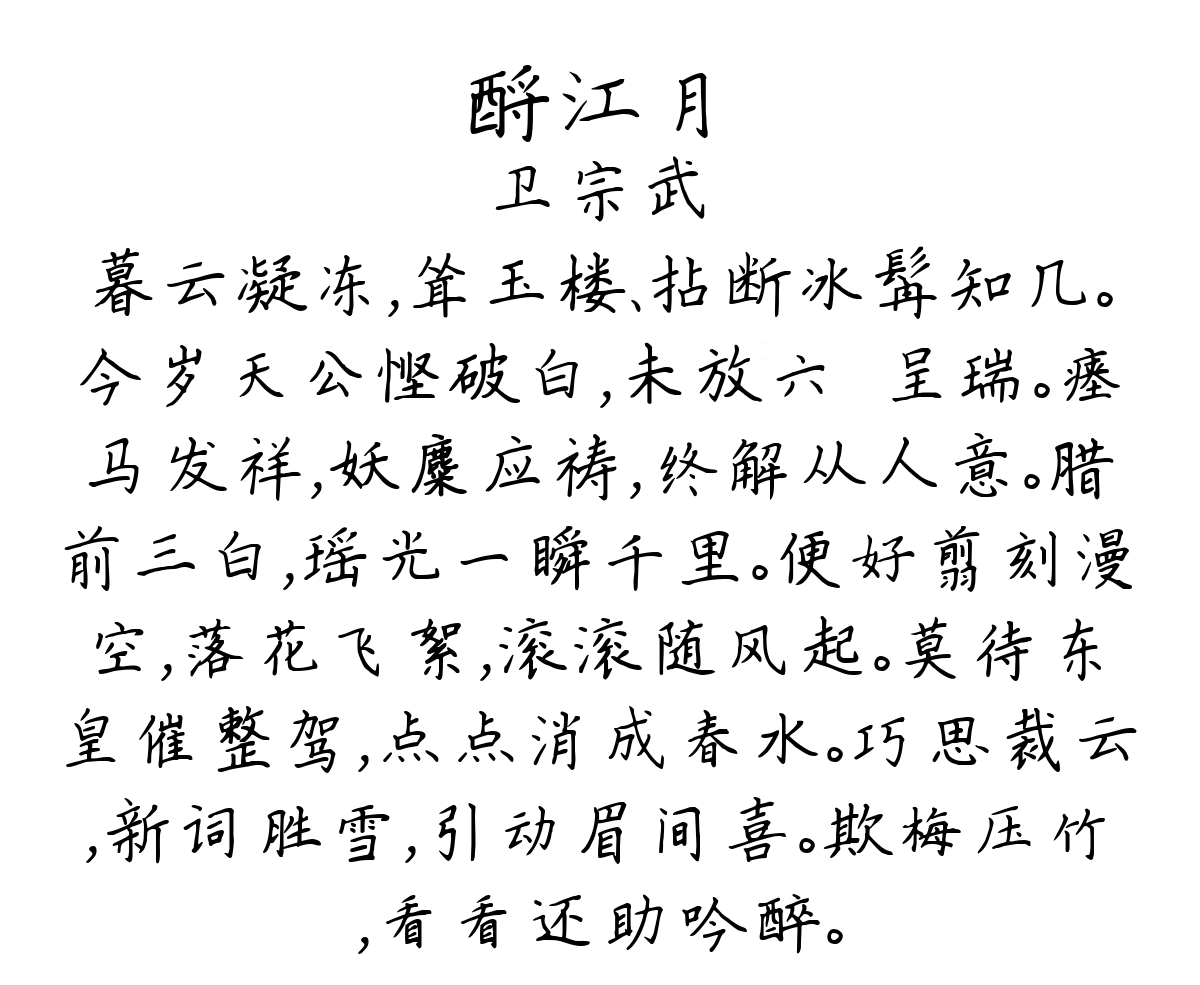 酹江月
卫宗武
暮云凝冻,耸玉楼、拈断冰髯知几。
今岁天公悭破白,未放六 呈瑞。瘗
马发祥,妖麋应祷,终解从人意。腊
前三白,瑶光一瞬千里。便好翦刻漫
空,落花飞絮,滚滚随风起。莫待东
皇催整驾,点点消成春水。巧思裁云
,新词胜雪,引动眉间喜。欺梅压竹
,看看还助吟醉。